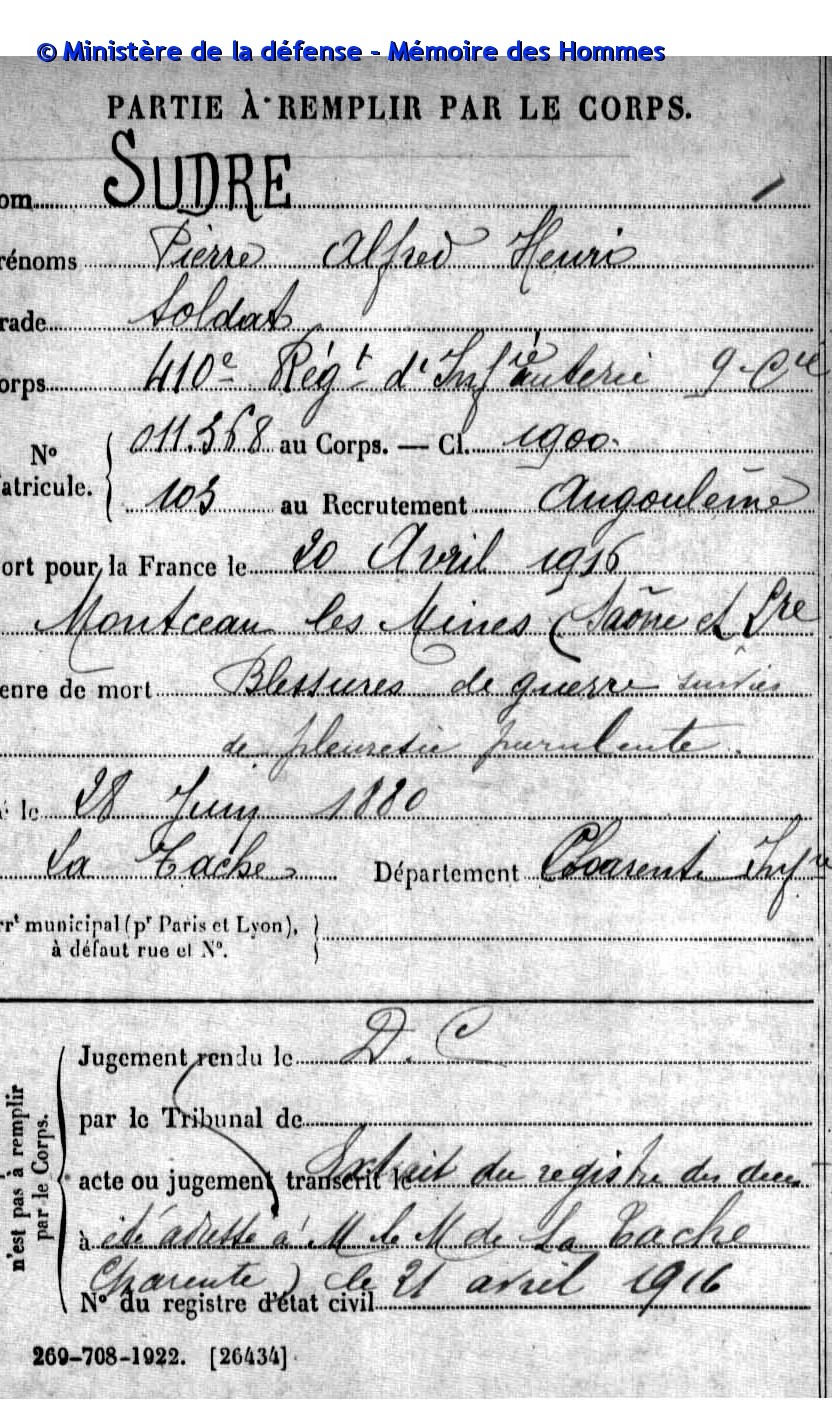 © Ministère de la défense - Mémoire des Hommes
PARTIE À REMPLIR PAR LE CORPS.
om SUDRE
rénoms Pierre Alfred Henri
rade Soldat
orps 410e Régt d'Infanterie 9e Cie
No atricule. { 011.368 au Corps. — Cl. 1900
103 au Recrutement Angoulême
ort pour la France le 20 Avril 1916
Montceau les Mines (Saône et Lre
enre de mort Blessures de guerre suivies
de pleuresie purulente.
é le 28 Juin 1880
La Tache Département Charente Infre
rrt municipal (pr Paris et Lyon),
à défaut rue et No.
n'est pas à remplir
par le Corps.
Jugement rendu le D. C
par le Tribunal de
acte ou jugement transcrit le Extrait du registre des deces
à été adressé à M le M de La Tache
Charente) le 21 avril 1916
No du registre d'état civil
269-708-1922. [26434]